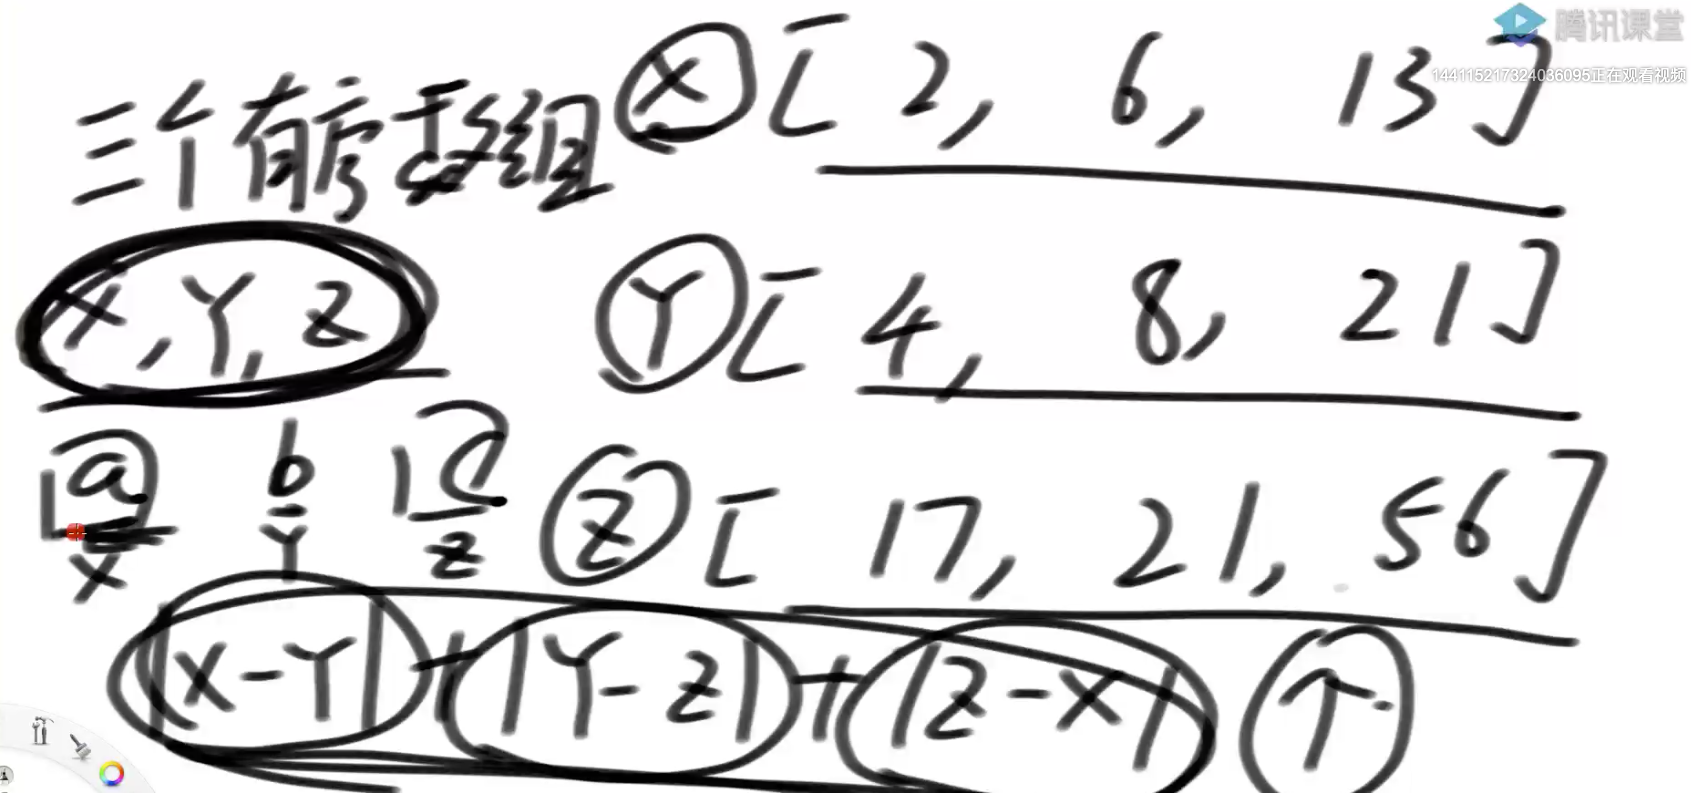 腾讯课堂
144115217324036095正在观看视频
三个有序数组 X [ 2, 6, 13 ]
X, Y, Z Y [ 4, 8, 21 ]
a b c Z [ 17, 21, 56 ]
X Y Z
|X-Y| + |Y-Z| + |Z-X| 个